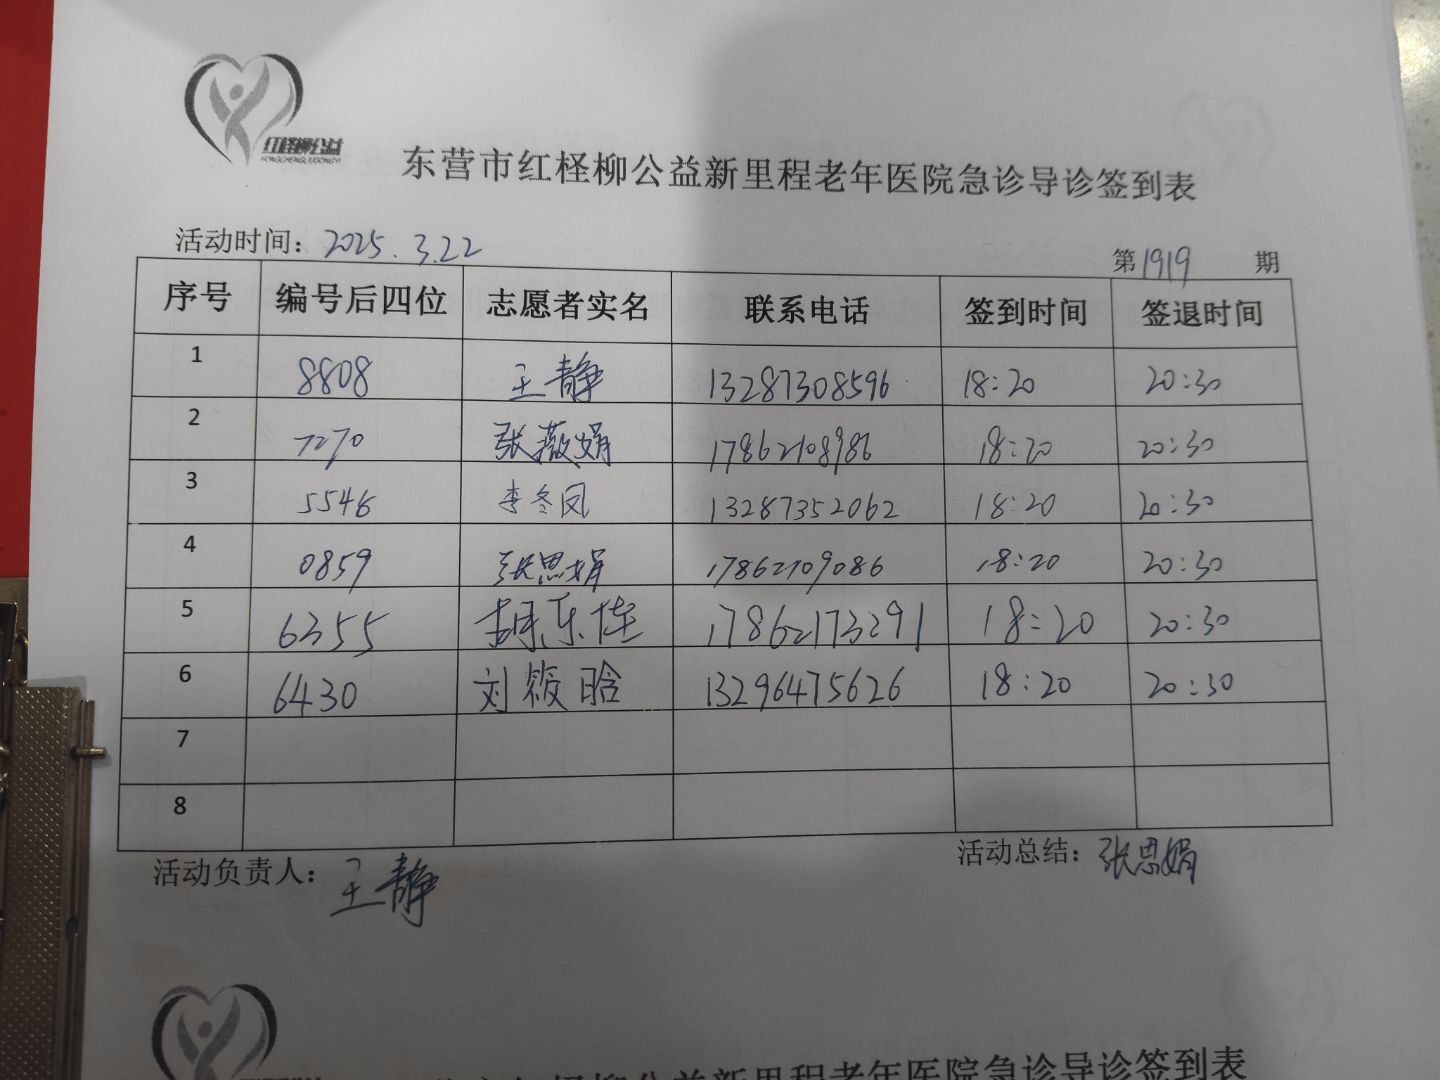 红柽柳公益
HONGCHENGLIUGONGYI
东营市红柽柳公益新里程老年医院急诊导诊签到表
活动时间：2025.3.22 第1919期
序号 编号后四位 志愿者实名 联系电话 签到时间 签退时间
1 8808 王静 13287308596 18:20 20:30
2 7270 张薇娟 17862108986 18:20 20:30
3 5546 李冬凤 13287352062 18:20 20:30
4 0859 张思娟 17862109086 18:20 20:30
5 6355 胡东佳 17862173291 18:20 20:30
6 6430 刘筱晗 13296475626 18:20 20:30
7
8
活动负责人：王静 活动总结：张思娟
红柽柳公益新里程老年医院急诊导诊签到表